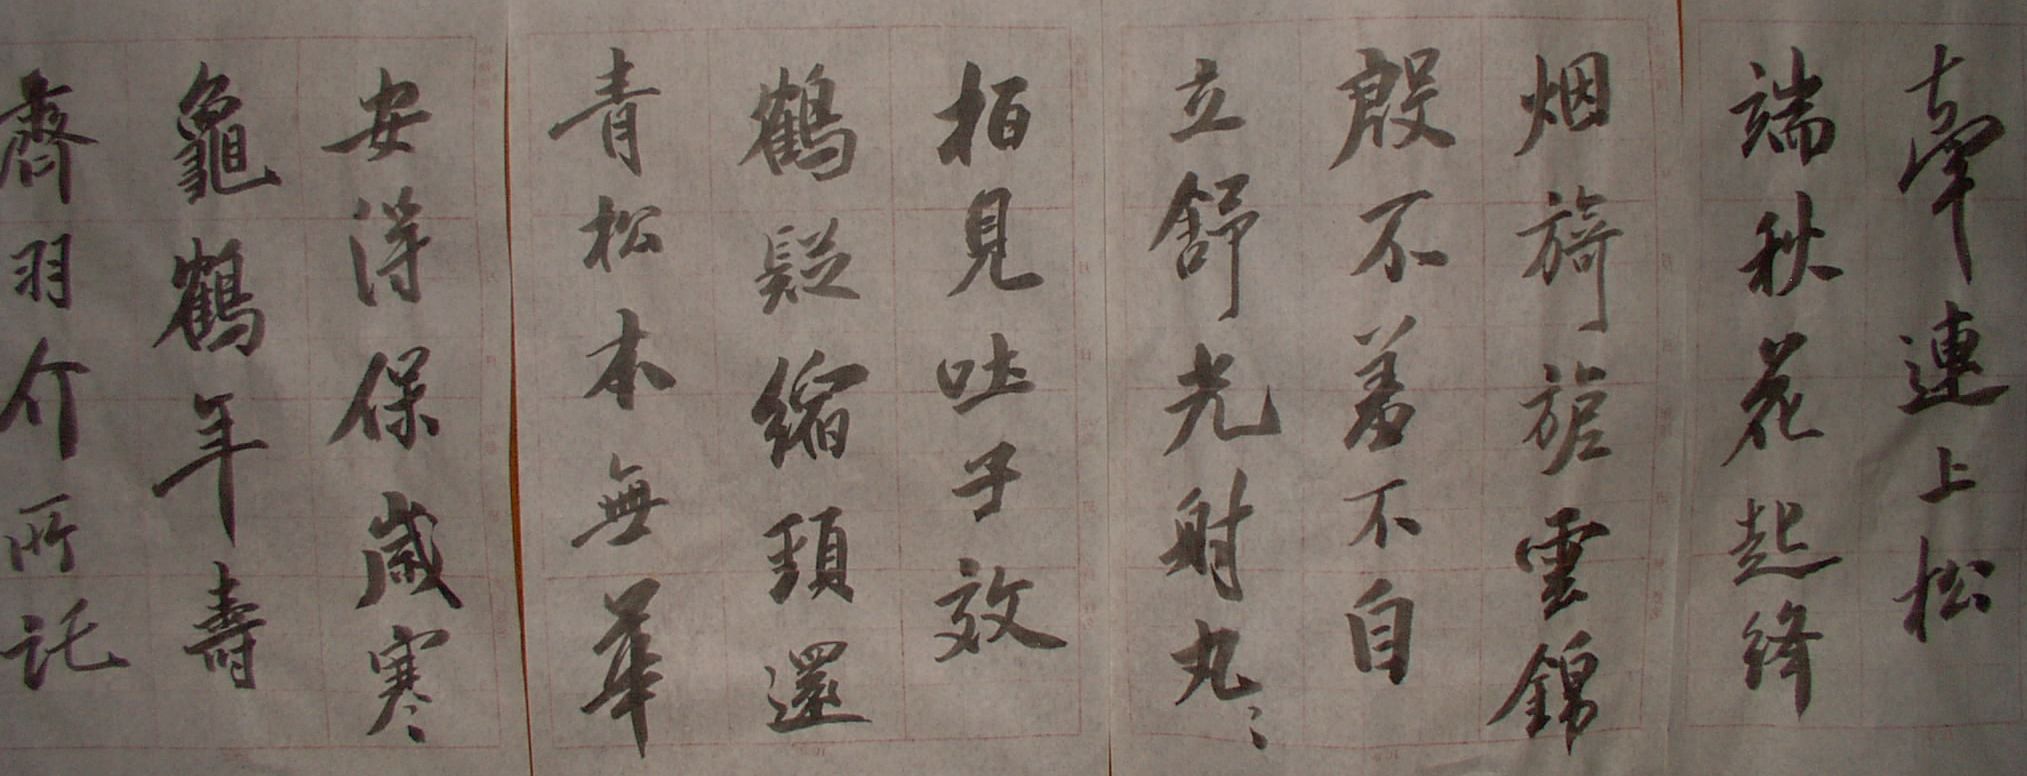 牽連上松
端秋花起绛
烟旖旎雲錦
殷不羞不自
立舒光射丸〻
栢見吐子效
鶴疑縮頚還
青松本無華
安得保歳寒〻
龜鶴年壽
齊羽介所託